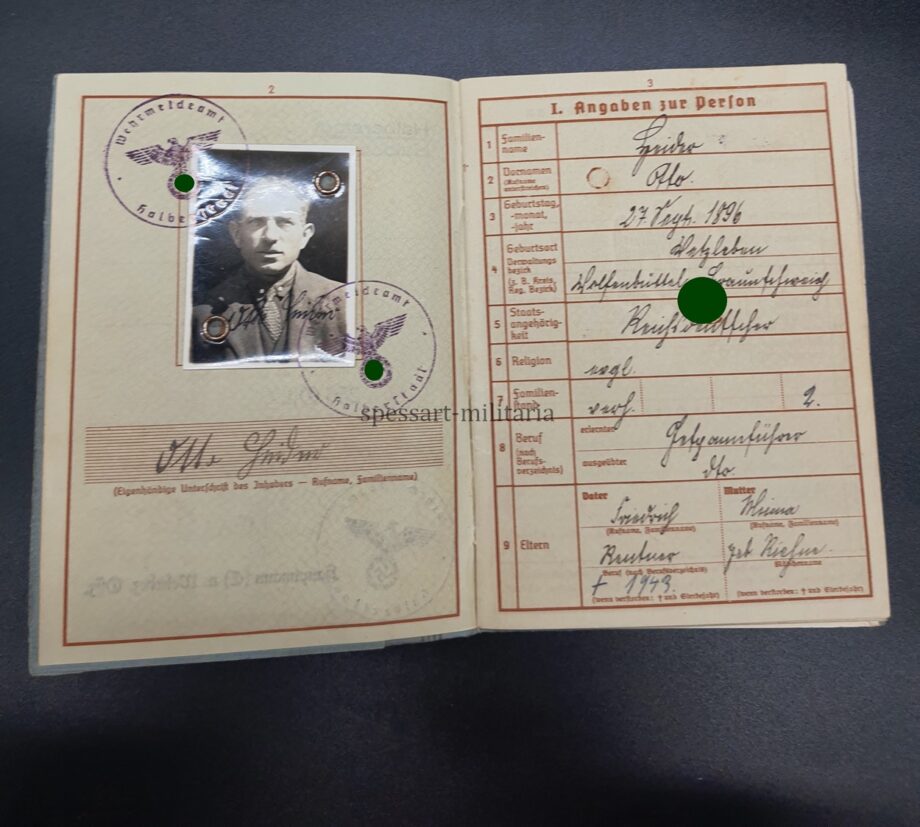 2
Wehrmeldeamt
Halberstadt
Wehrmeldeamt
Halberstadt
Otto Heider
(Eigenhändige Unterschrift des Inhabers — Rufname, Familienname)
spessart-militaria
3
I. Angaben zur Person
1 Familienname Heider
2 Vornamen (Rufname unterstreichen) Otto.
3 Geburtstag, -monat, -jahr 27. Sept. 1896
4 Geburtsort
Verwaltungsbezirk (z. B. Kreis, Reg. Bezirk) Wolfenbüttel, Braunschweig
5 Staatsangehörigkeit Reichsdeutscher
6 Religion evgl.
7 Familienstand verh. 2.
8 Beruf (nach Berufsverzeichnis) erlernter Gespannführer
ausgeübter dto.
9 Eltern
Vater Mutter
Friedrich Minna
(Rufname, Familienname) (Rufname, Familienname)
Rentner geb.
Beruf (nach Berufsverzeichnis) Mädchenname
† 1943.
(wenn verstorben: † und Sterbejahr) (wenn verstorben: † und Sterbejahr)